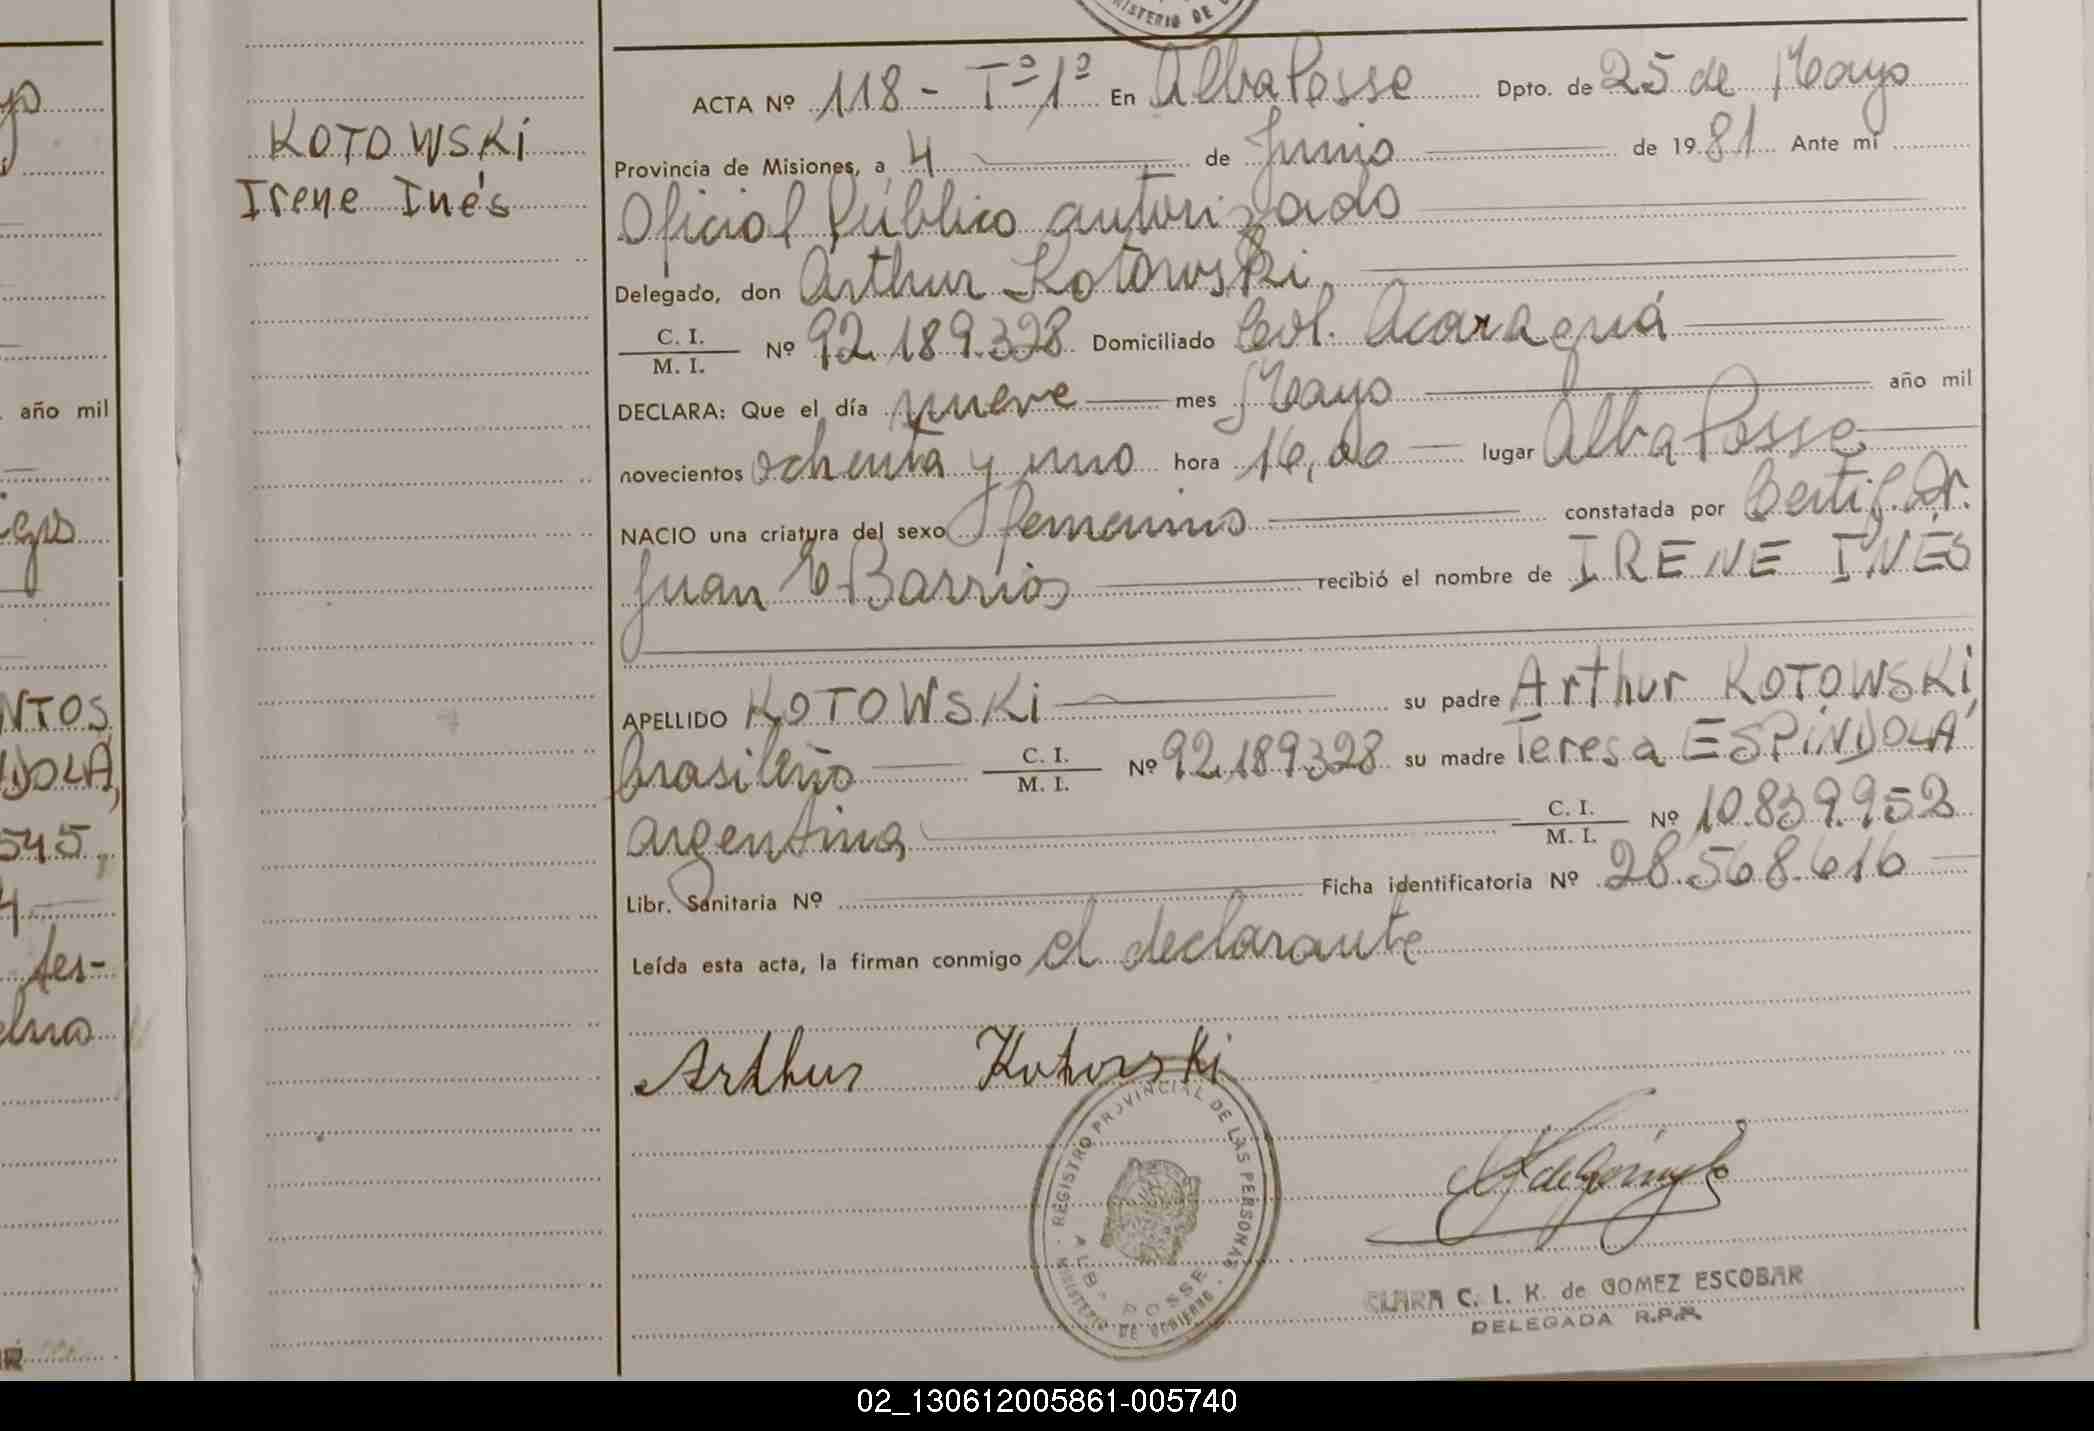 MINISTERIO DE
ACTA Nº 118 - Tº 1º En Alba Posse Dpto. de 25 de Mayo
KOTOWSKi
Irene Inés
Provincia de Misiones, a 4 de Junio de 1981 Ante mí
Oficial Público autorizado
Delegado, don Arthur Kotowski
C. I.
M. I.
Nº 92.189.328 Domiciliado Col. Acaraguá
DECLARA: Que el día nueve mes Mayo año mil
novecientos ochenta y uno hora 16,00 lugar Alba Posse
NACIO una criatura del sexo femenino constatada por Certif. Dr.
Juan E Barrios recibió el nombre de IRENE INÉS
APELLIDO KOTOWSKi su padre Arthur KOTOWSKi,
brasileño C. I.
M. I.
Nº 92.189328 su madre Teresa ESPiNDOLA
argentina C. I.
M. I.
Nº 10.839.952
Libr. Sanitaria Nº Ficha identificatoria Nº 28.568.616
Leída esta acta, la firman conmigo el declarante
Arthur Kotovski
REGISTRO PROVINCIAL DE LAS PERSONAS
ALBA POSSE
MINISTERIO DE GOBIERNO
CLARA C. L. K. de GOMEZ ESCOBAR
DELEGADA R.P.P.
año mil
NTOS
NDOLA,
545,
tes-
02_130612005861-005740